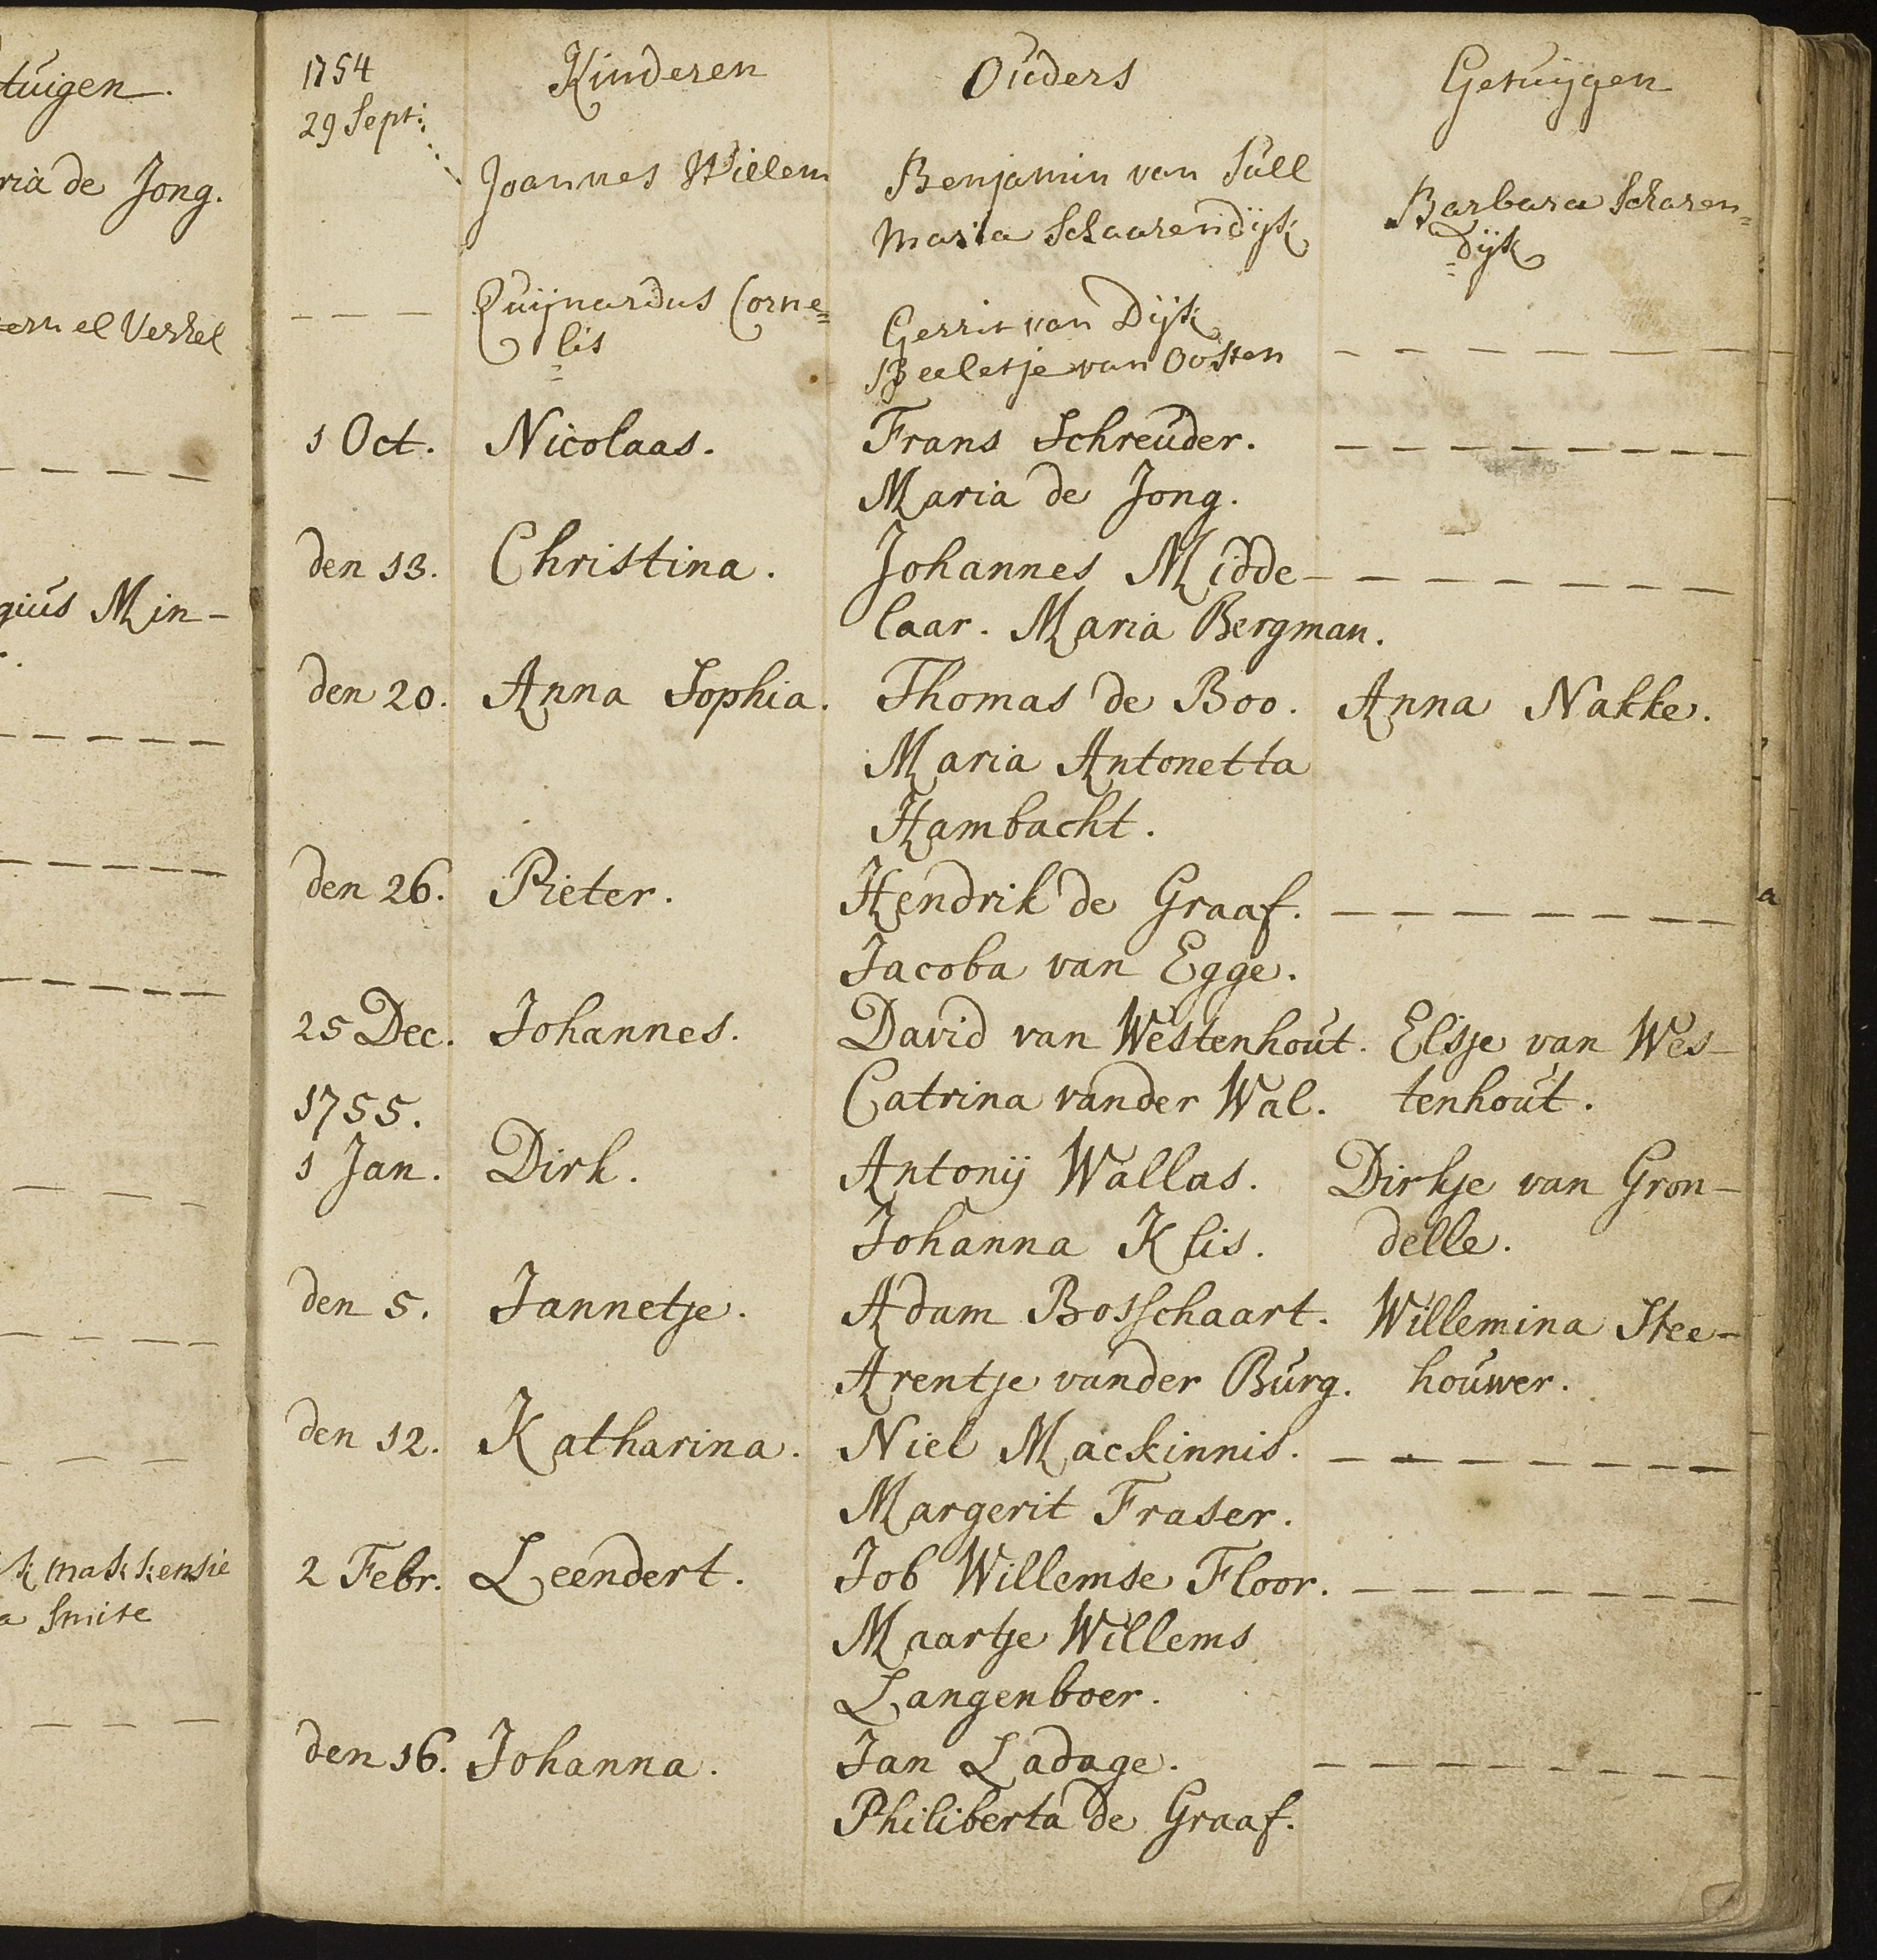 tuigen.
ria de Jong.
el Verkel
gius Min-
makkensie
a Smite
1754 Kinderen Ouders Getuijgen
29 Sept:
Joannes Willem Benjamin van Sull Barbara Scharen=
Maria Schaarendijk =dijk
Quijnardus Corne= Gerrit van Dijk
=lis Beeletje van Oosten
1 Oct. Nicolaas. Frans Schreuder.
Maria de Jong.
den 13. Christina. Johannes Midde-
laar. Maria Bergman.
den 20. Anna Sophia. Thomas de Boo. Anna Nakke.
Maria Antonetta
Hambacht.
den 26. Pieter. Hendrik de Graaf.
Jacoba van Egge.
25 Dec. Johannes. David van Westenhout. Elsje van Wes-
1755. Catrina vander Wal. tenhout.
1 Jan. Dirk. Antonij Wallas. Dirkje van Gron-
Johanna Klis. delle.
den 5. Jannetje. Adam Bosschaart. Willemina Stee-
Arentje vander Burg. houwer.
den 12. Katharina. Niel Mackinnis.
Margerit Fraser.
2 Febr. Leendert. Job Willemse Floor.
Maartje Willems
Langenboer.
den 16. Johanna. Jan Ladage.
Philiberta de Graaf.